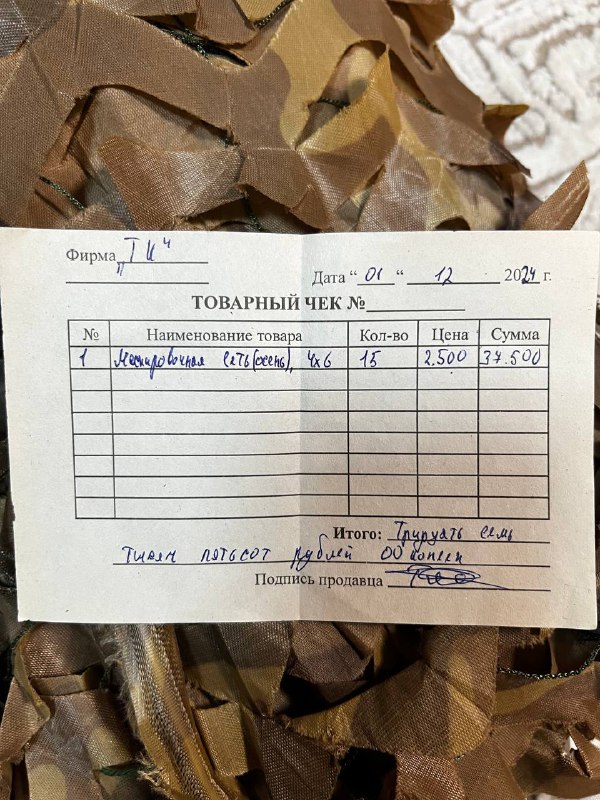 Фирма „ТК“
Дата “ 01 “ 12 2024 г.
ТОВАРНЫЙ ЧЕК №
№ Наименование товара Кол-во Цена Сумма
1 Маскировочная сеть (осень), 4х6 15 2.500 37.500
Итого: Тридцать семь
тысяч пятьсот рублей 00 копеек
Подпись продавца